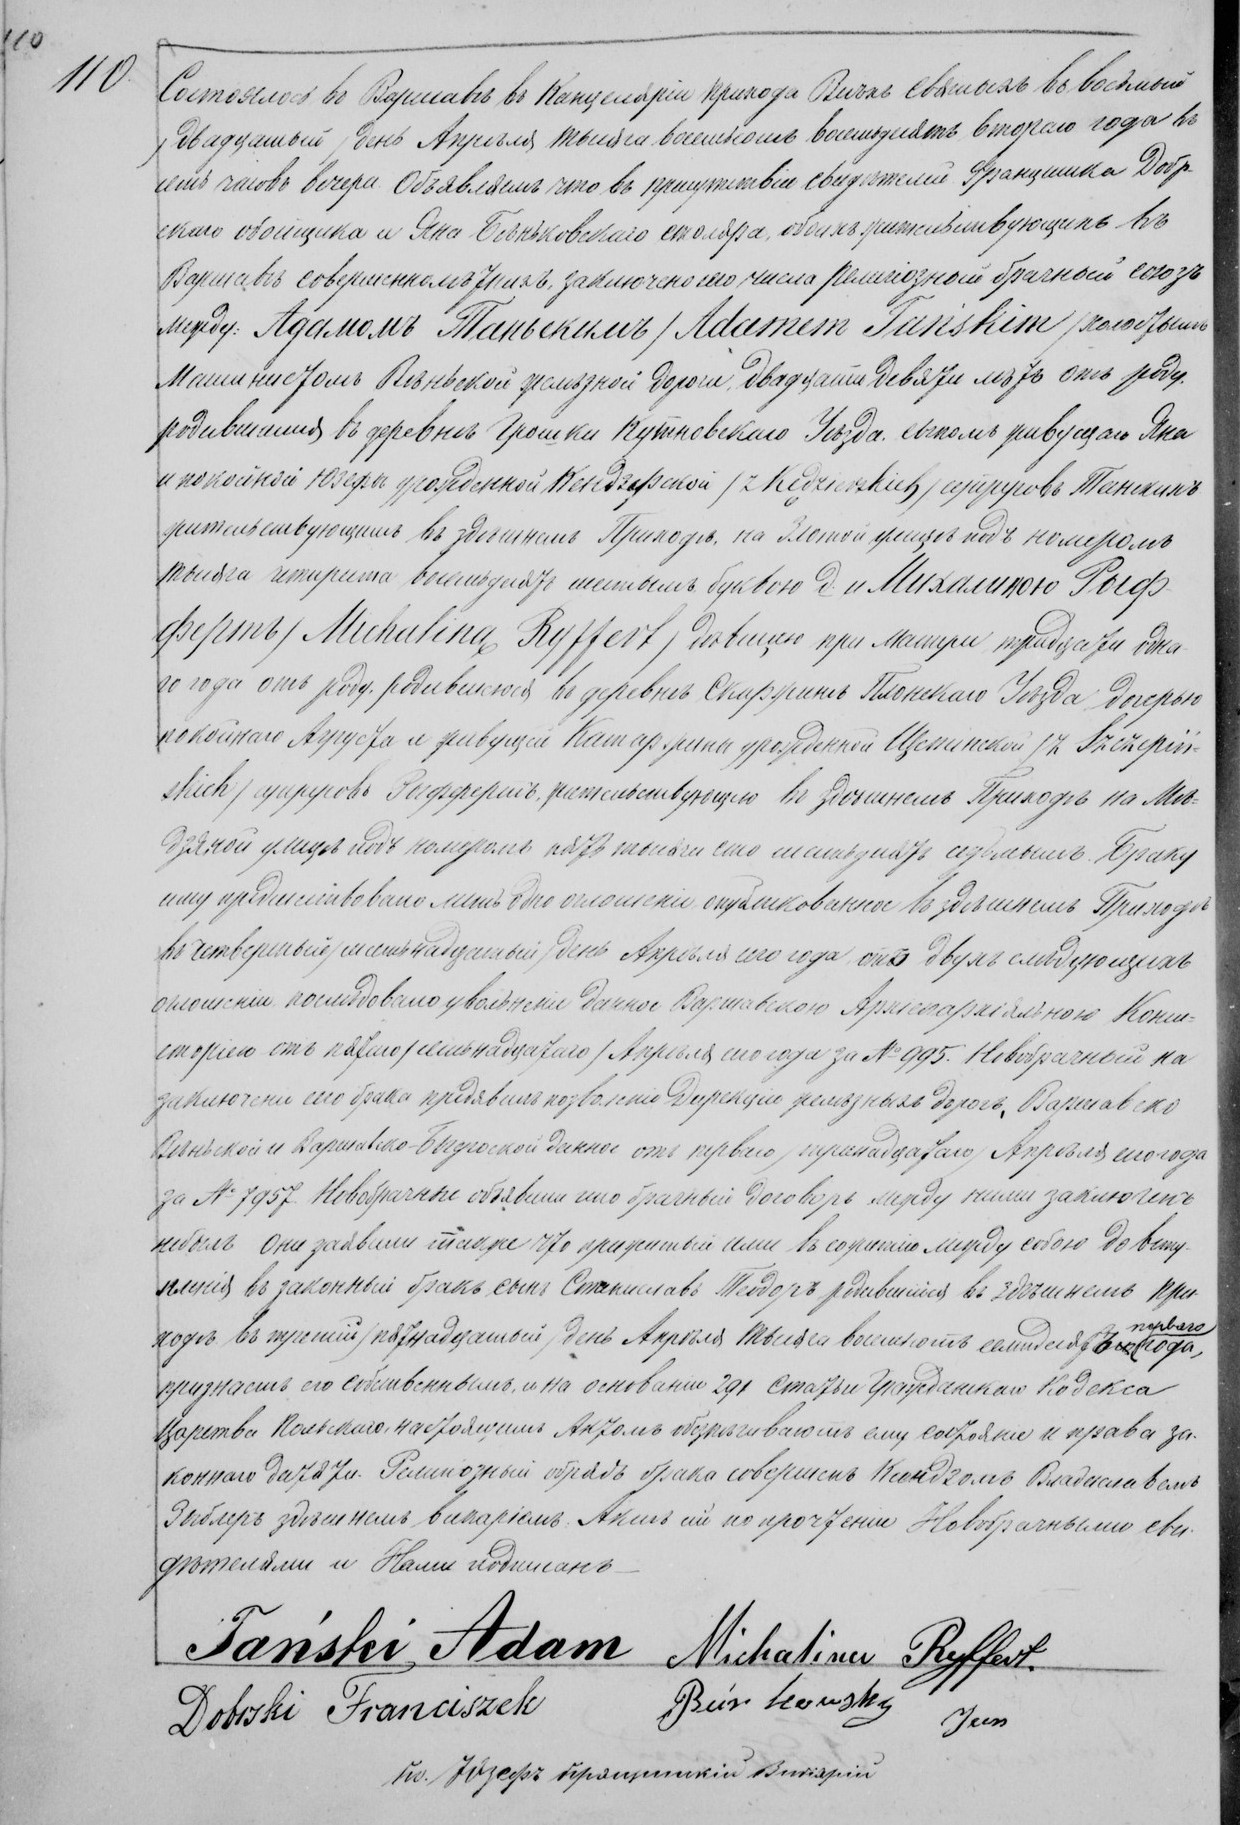 110
110.
Состоялось въ Варшавѣ въ Канцеляріи прихода Всѣхъ Святыхъ въ восьмый
/двадцатый/ день Апрѣля тысяча восемьсотъ восемьдесятъ втораго года въ
часовъ вечера. Объявляемъ что въ присутствіи свидѣтелей Францишка Добр-
скаго обойщика и Яна Бѣньковскаго столяра, обоихъ жительствующихъ въ
Варшавѣ совершеннолѣтнихъ, заключено сего числа религіозный брачный союзъ
между: Адамомъ Таньскимъ /Adamem Tańskim/ холостымъ
Машинистомъ Вѣньской желѣзной дороги, двадцати девяти лѣтъ отъ роду,
родившимся въ деревнѣ Грошки Кутновскаго Уѣзда, сыномъ живущаго Яна
и покойной Юзефы урожденной Кендзерской /z Kędzierskich/ супруговъ Танскихъ
жительствующимъ въ здѣшнемъ Приходѣ, на Златой улицѣ подъ номеромъ
тысяча четыреста восемьдесятъ шестымъ буквою D. и Михалиною Рыф-
фертъ /Michaliną Ryffert/ дѣвицею при матери, тридцати одна-
го года отъ роду, родившеюся въ деревнѣ Плонскаго Уѣзда, дочерью
покойнаго Августа и живущей Катаржины урожденной Щепинской /z Szczepiń-
skich/ супруговъ Рыффертъ, жительствующею въ здѣшнемъ Приходѣ на Мѣ-
дзяной улицѣ подъ номеромъ пять тысячъ сто шестьдесятъ седьмымъ. Браку
сему предшествовало лишь одно оглашеніе опубликованное въ здѣшнемъ Приходѣ
въ четвертый /шестьнадцатый/ день Апрѣля сего года отъ двухъ слѣдующихъ
оглашеній послѣдовало увольненіе данное Варшавскою Архіепархіяльною Конси-
сторіею отъ пятаго /семьнадцатаго/ Апрѣля сего года за № 995. Новобрачный на
заключеніе сего брака предъявилъ позволеніе Дирекціи желѣзныхъ дорогъ, Варшавско
Вѣньской и Варшавско-Быдгоской данное отъ перваго /тринадцатаго/ Апрѣля сего года
за № 7957. Новобрачные объявили что брачный договоръ между ними заключенъ
небылъ. Они заявили также что прижитый ими въ сожитію между собою до всту-
пленія въ законный бракъ сынъ Станиславъ Теодоръ родившійся въ здѣшнемъ при-
ходѣ въ третій /пятнадцатый/ день Апрѣля тысяча восемьсотъ семьдесятъ перваго года,
признаютъ его собственнымъ, и на основаніи 291 статьи Гражданскаго Кодекса
Царства Польскаго, настоящимъ Актомъ обезпечиваютъ ему состояніе и права за-
коннаго дитяти. Религіозный обрядъ брака совершенъ Ксендзомъ Владиславомъ
Зыблеръ здѣшнемъ викаріемъ. Актъ сей по прочтеніи Новобрачными сви-
дѣтелями и Нами подписанъ —
Tański Adam Michalina Ryffert.
Dobrski Franciszek Jan
Кс. Юзефъ Викарій